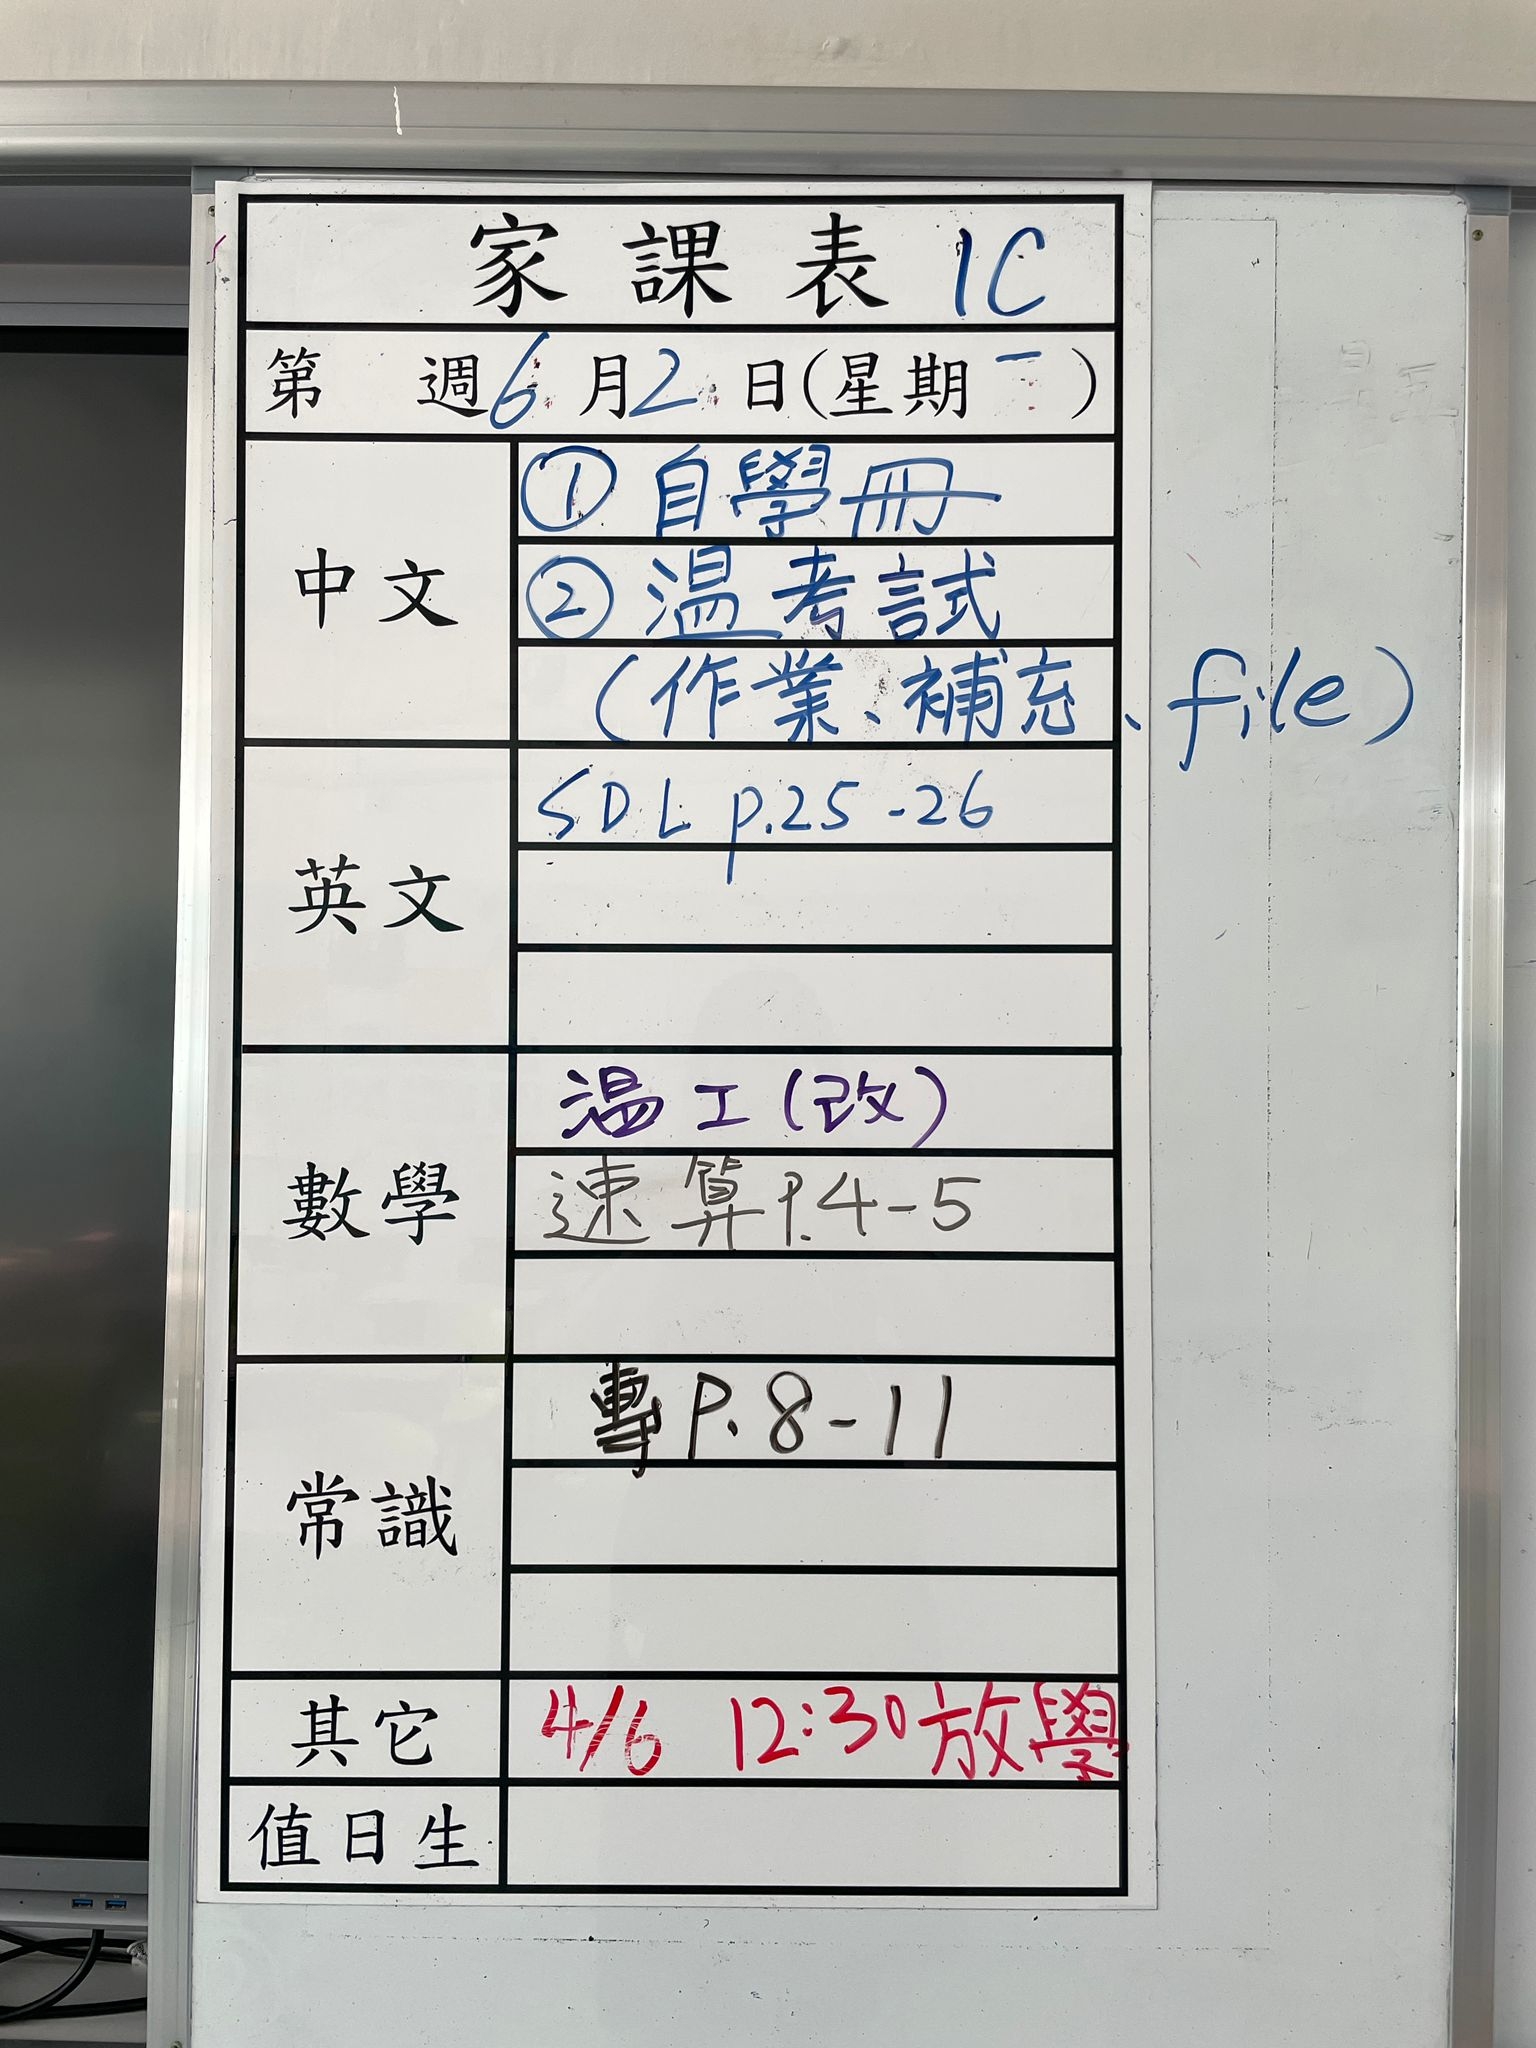 家課表 1C
第 週 6月2日(星期一)
中文
① 自學冊
② 温考試
(作業、補充、file)
英文
SDL p.25-26
數學
温工(改)
速算P.4-5
常識
專P.8-11
其它
4/6 12:30放學
值日生